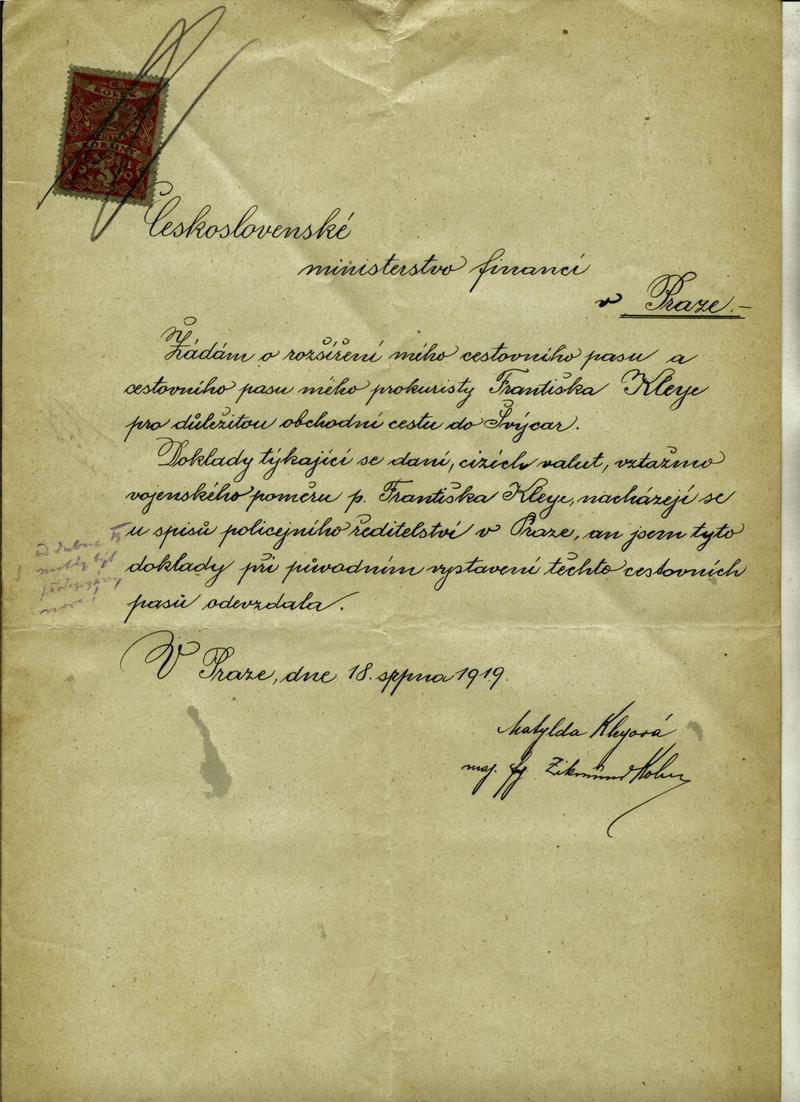 KOLEK
KORUNY
Československé
ministerstvo financí
v Praze.-
Žádám o rozšíření mého cestovního pasu a
cestovního pasu mého prokuristy Františka Kleye
pro důležitou obchodní cestu do Švýcar.
Doklady týkající se daní, cizích valut, vztažmo
vojenského poměru p. Františka Kleye, nacházejí se
u spisů policejního ředitelství v Praze, an jsem tyto
doklady při původním vystavení těchto cestovních
pasů odevzdala.
od dubna
mohly být
nové!
V Praze, dne 18. srpna 1919.
Matylda Kleyová
maj. fy Zikmund Kohn